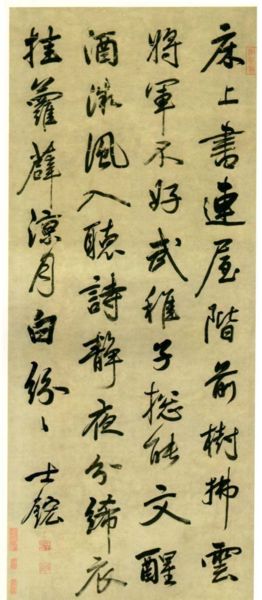 床上書連屋階前樹拂雲
將軍不好武稚子揔能文醒
酒微風入聽詩靜夜分絺衣
挂蘿薜涼月白紛〻 士鋐